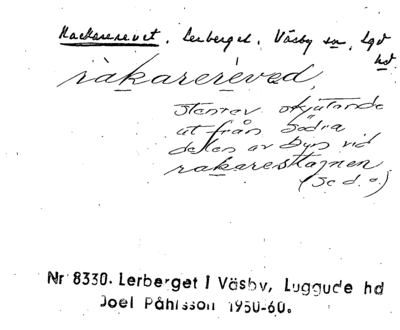 Rackarerevet. Lerberget. Väsby sn, Lgd
hd
räkareréved,
stenrev skjutande
ut från södra
delen av byn vid
rakarestagnen
(se d. o.)
Nr 8330. Lerberget i Väsby, Luggude hd
Joel Påhlsson 1950-60.